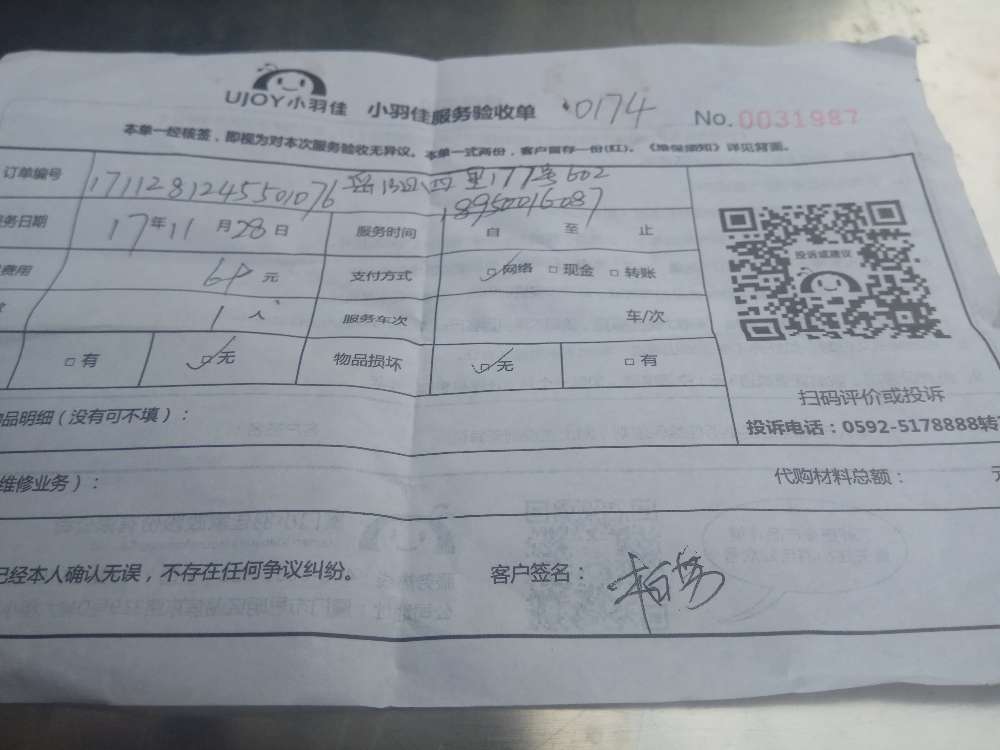 UJOY小羽佳 小羽佳服务验收单 0174 No.0031987
本单一经核签，即视为对本次服务验收无异议。本单一式两份，客户留存一份(红)。《维保须知》详见背面。
订单编号 1711281245501076 四里177号602
8950016087
务日期 17年11月28日 服务时间 自 至 止
费用 元 支付方式 网络 □现金 □转账
1人 服务车次 车/次
□有 无 物品损坏 无 □有
投诉或建议
扫码评价或投诉
投诉电话：0592-5178888转
品明细（没有可不填）：
维修业务）： 代购材料总额：
已经本人确认无误，不存在任何争议纠纷。 客户签名：